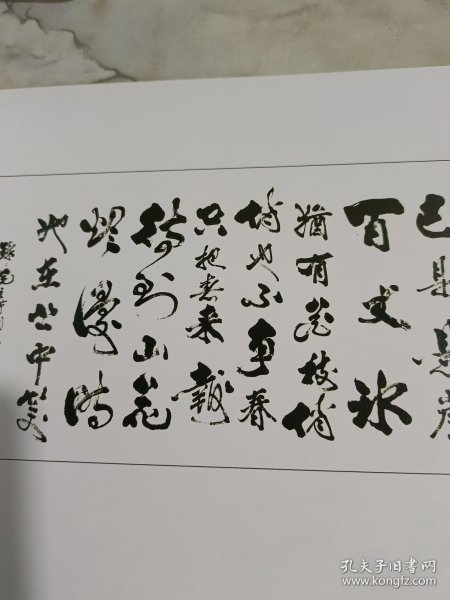 已是悬崖
百丈冰
猶有花枝俏
俏也不争春
只把春来報
待到山花
烂漫时
她在丛中笑
孔夫子旧书网
www.kongfz.com